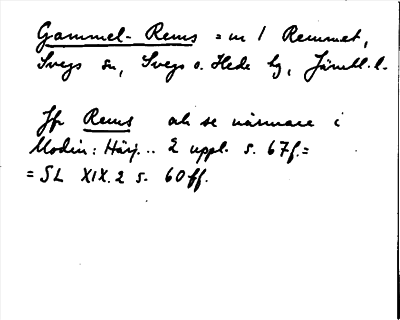 Gammel-Rems = nr 1 Remmet,
Svegs sn, Svegs o. Hede tg, Jämtl. l.
Jfr Rems och se närmare i
Modin: Härj... 2 uppl. s. 67f. =
= SL XIX.2 s. 60ff.